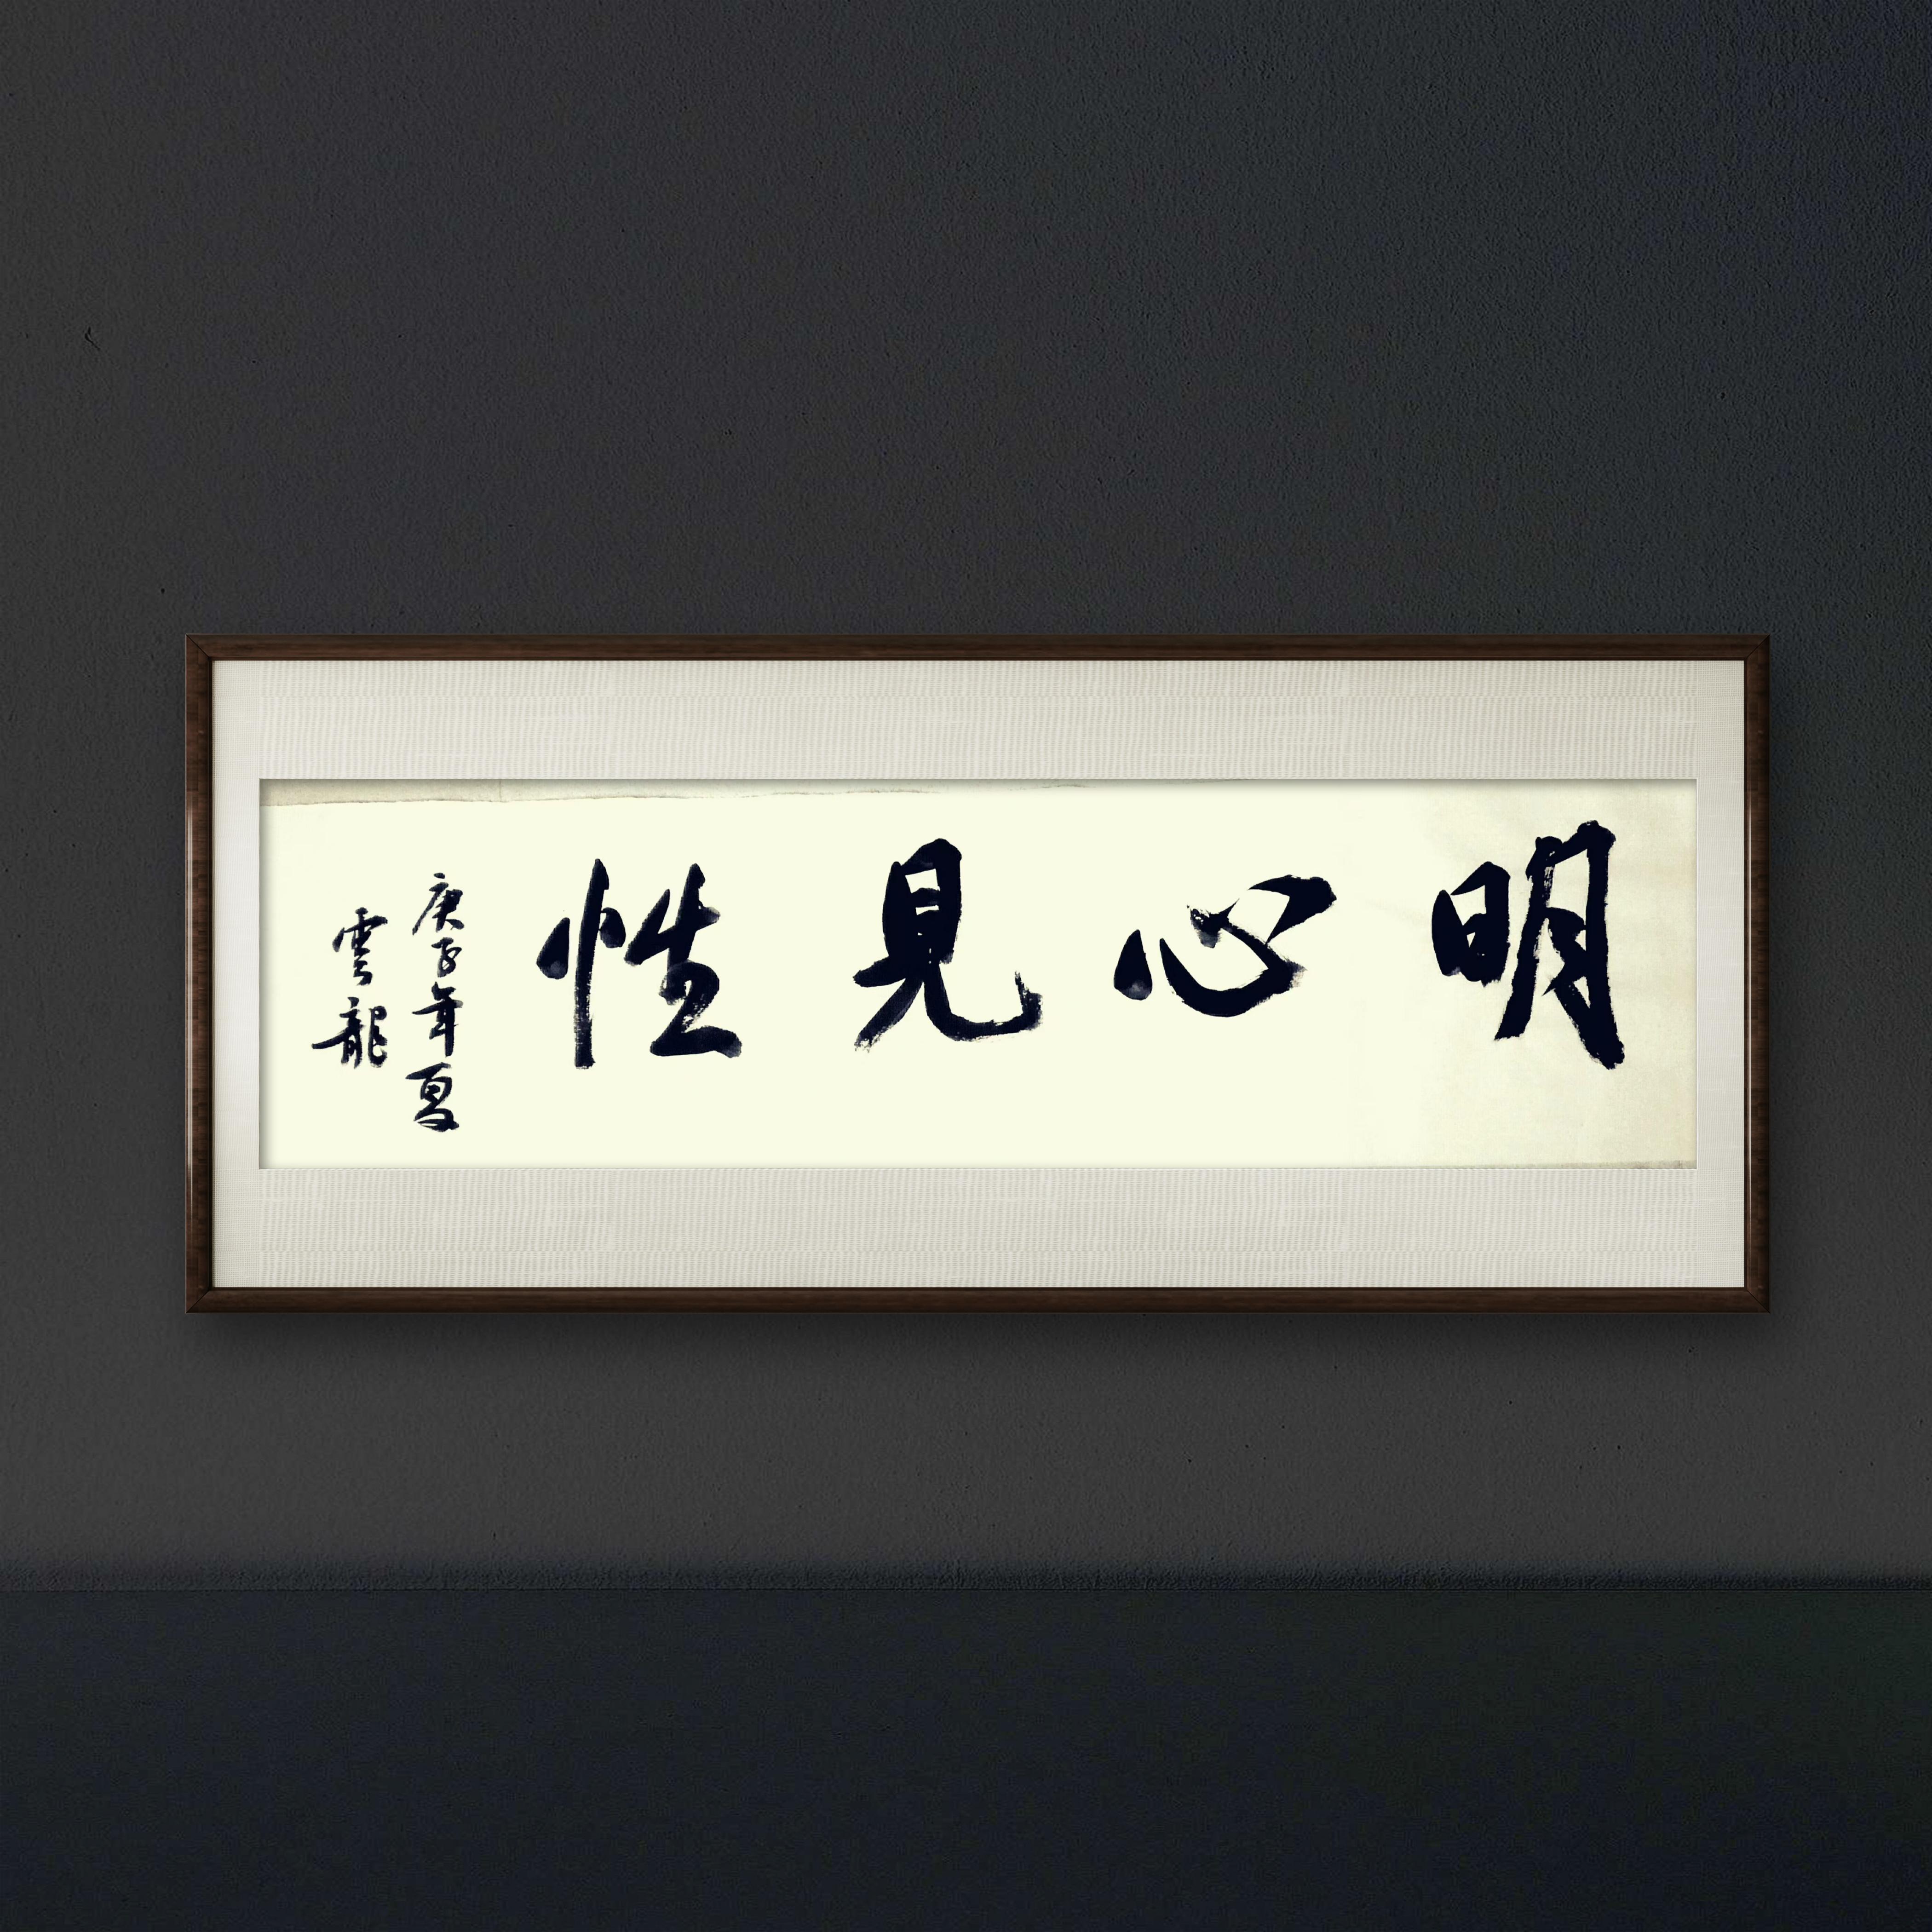 明心見性
庚子年夏
雲龍